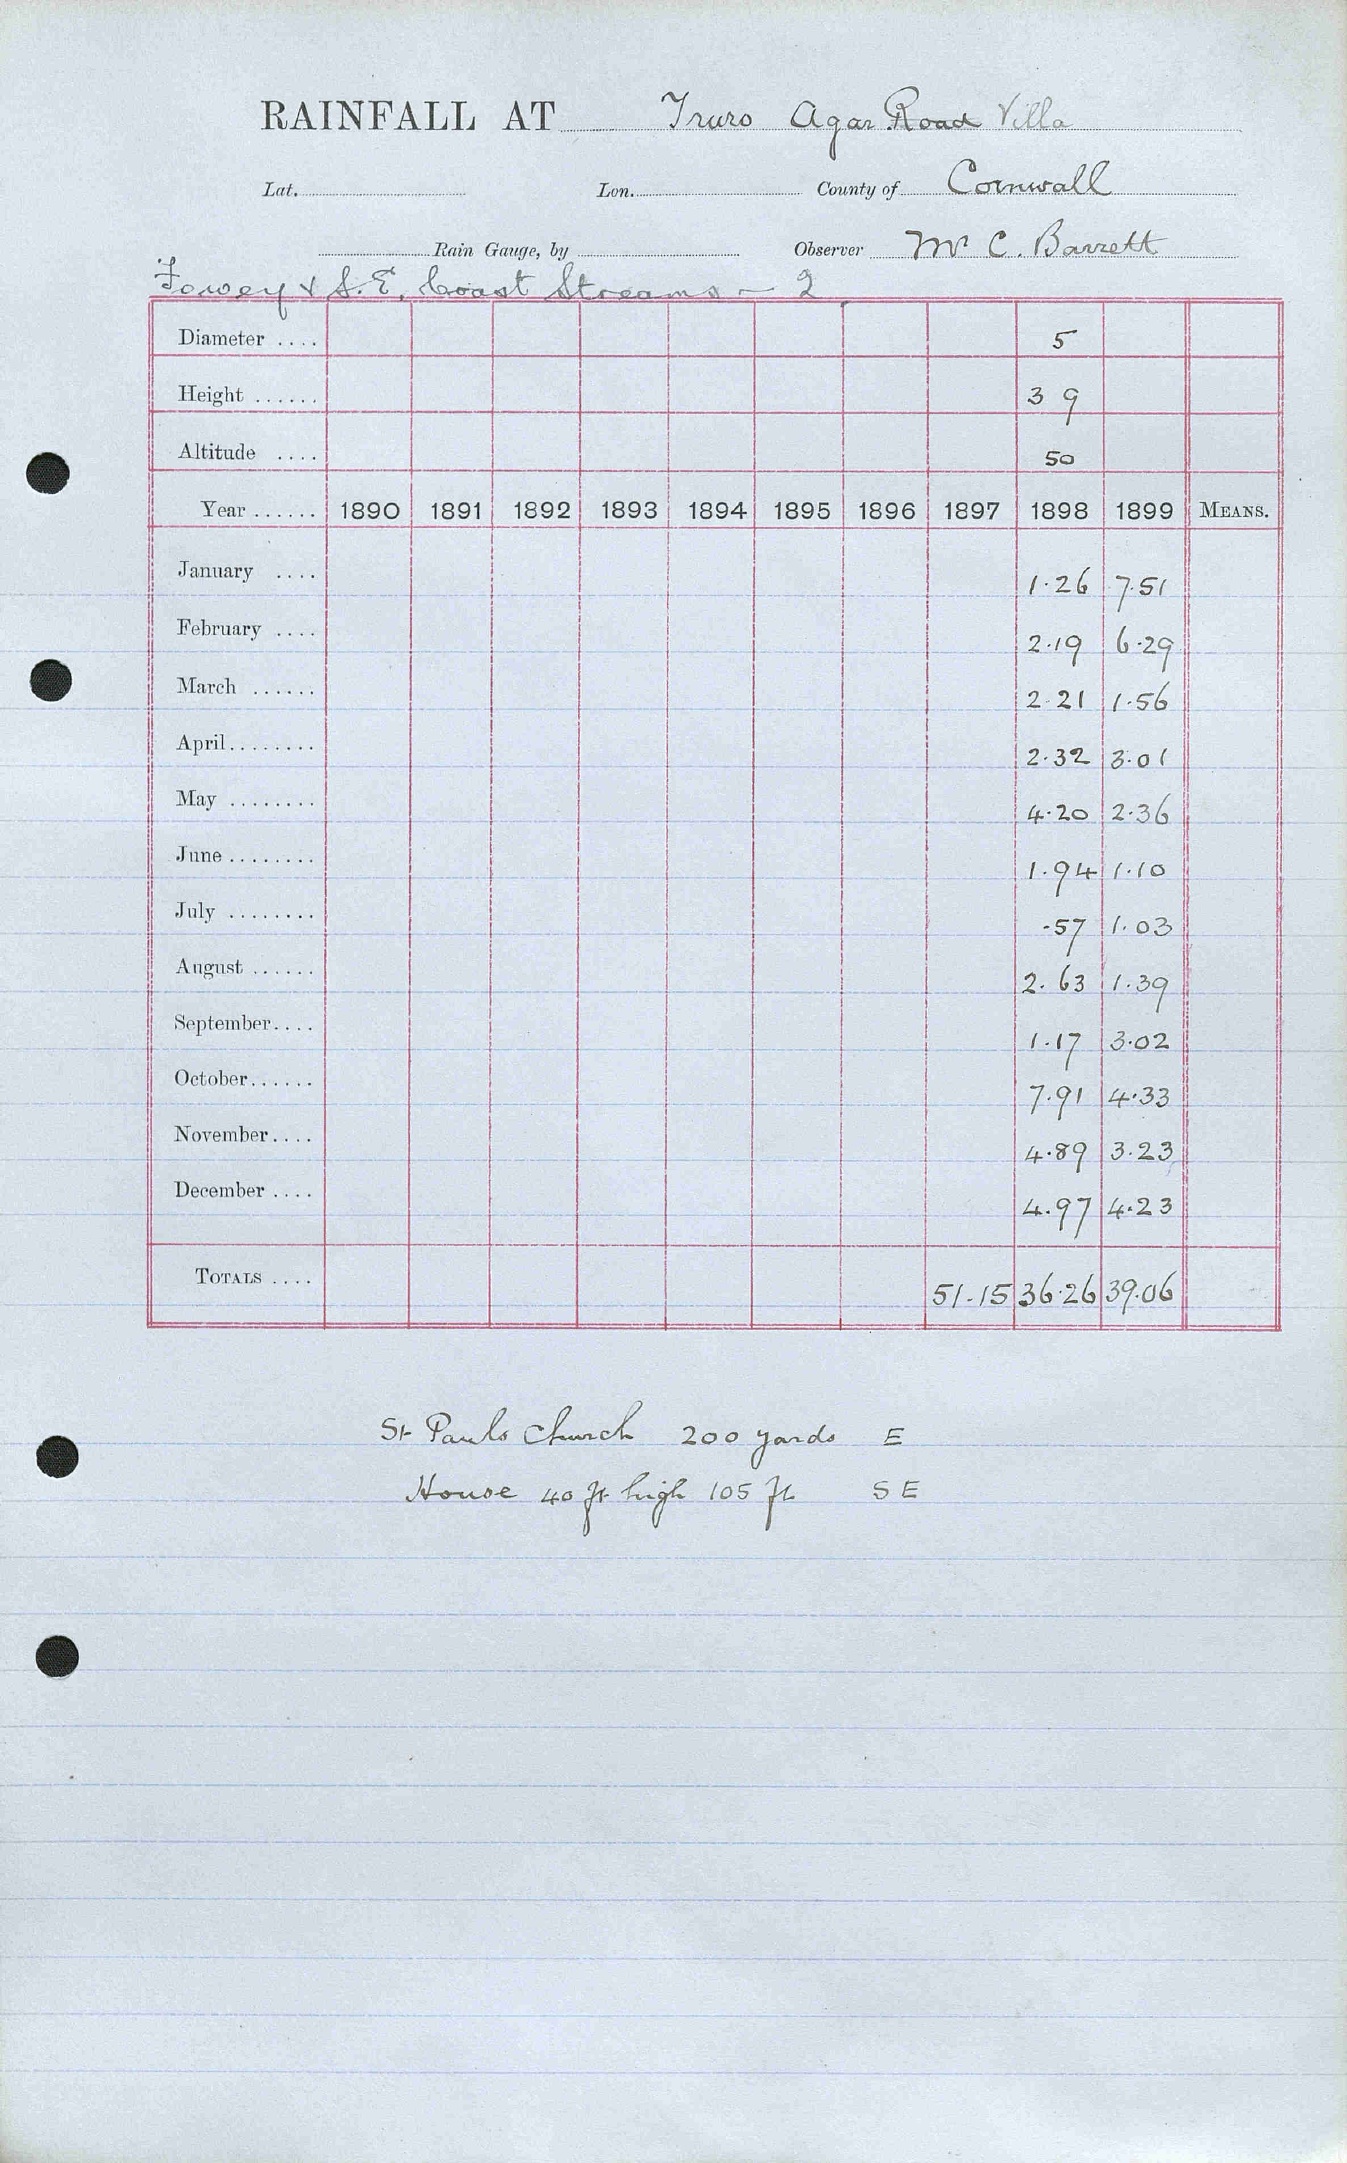 RAINFALL AT Truro Agar Road Villa
Lat. Lon. County of Cornwall
Rain Gauge, by Observer Mr C. Barrett
Fowey & S.E. Coast Streams - 2
Diameter .... 5
Height ...... 3 9
Altitude .... 50
Year ...... 1890 1891 1892 1893 1894 1895 1896 1897 1898 1899 MEANS.
January .... 1.26 7.51
February .... 2.19 6.29
March ...... 2.21 1.56
April........ 2.32 3.01
May ........ 4.20 2.36
June ........ 1.94 1.10
July ........ .57 1.03
August ...... 2.63 1.39
September.... 1.17 3.02
October...... 7.91 4.33
November.... 4.89 3.23
December .... 4.97 4.23
TOTALS .... 51.15 36.26 39.06
St Pauls Church 200 yards E
House 40 ft high 105 ft S E